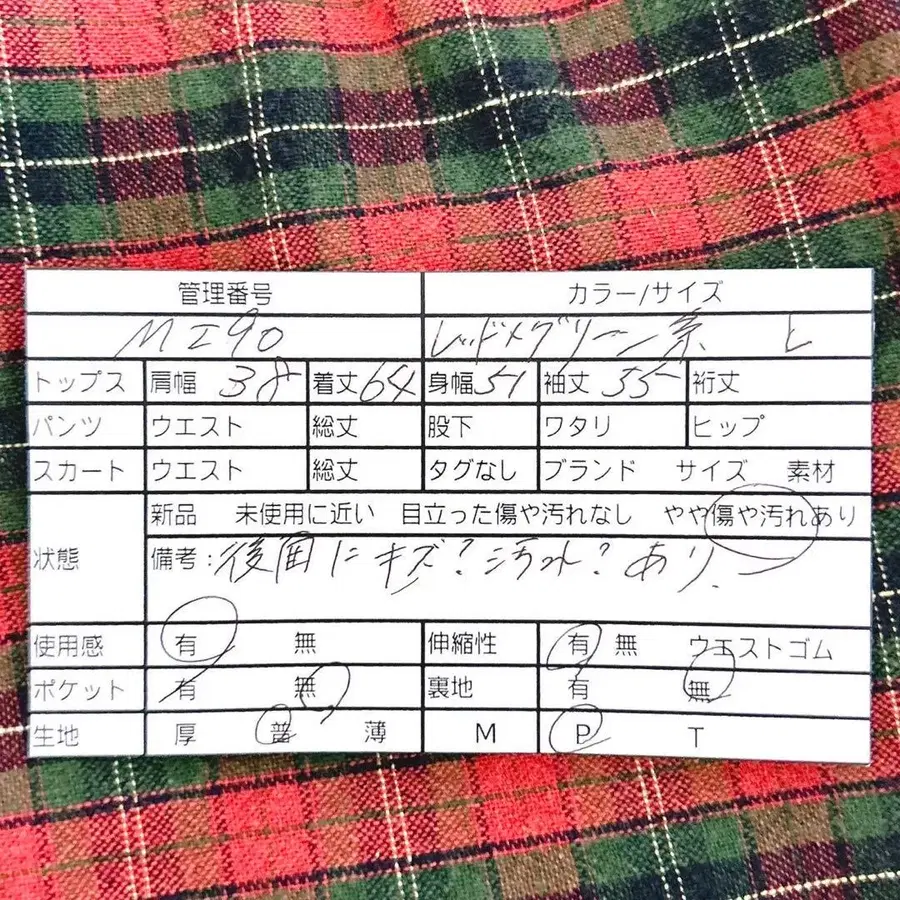 管理番号 カラー/サイズ
MI90 レッド×グリーン系 L
トップス 肩幅 38 着丈 64 身幅 51 袖丈 55 裄丈
パンツ ウエスト 総丈 股下 ワタリ ヒップ
スカート ウエスト 総丈 タグなし ブランド サイズ 素材
新品 未使用に近い 目立った傷や汚れなし やや傷や汚れあり
状態 備考:後面にキズ?汚れ?あり.
使用感 有 無 伸縮性 有 無 ウエストゴム
ポケット 有 無 裏地 有 無
生地 厚 普 薄 M P T